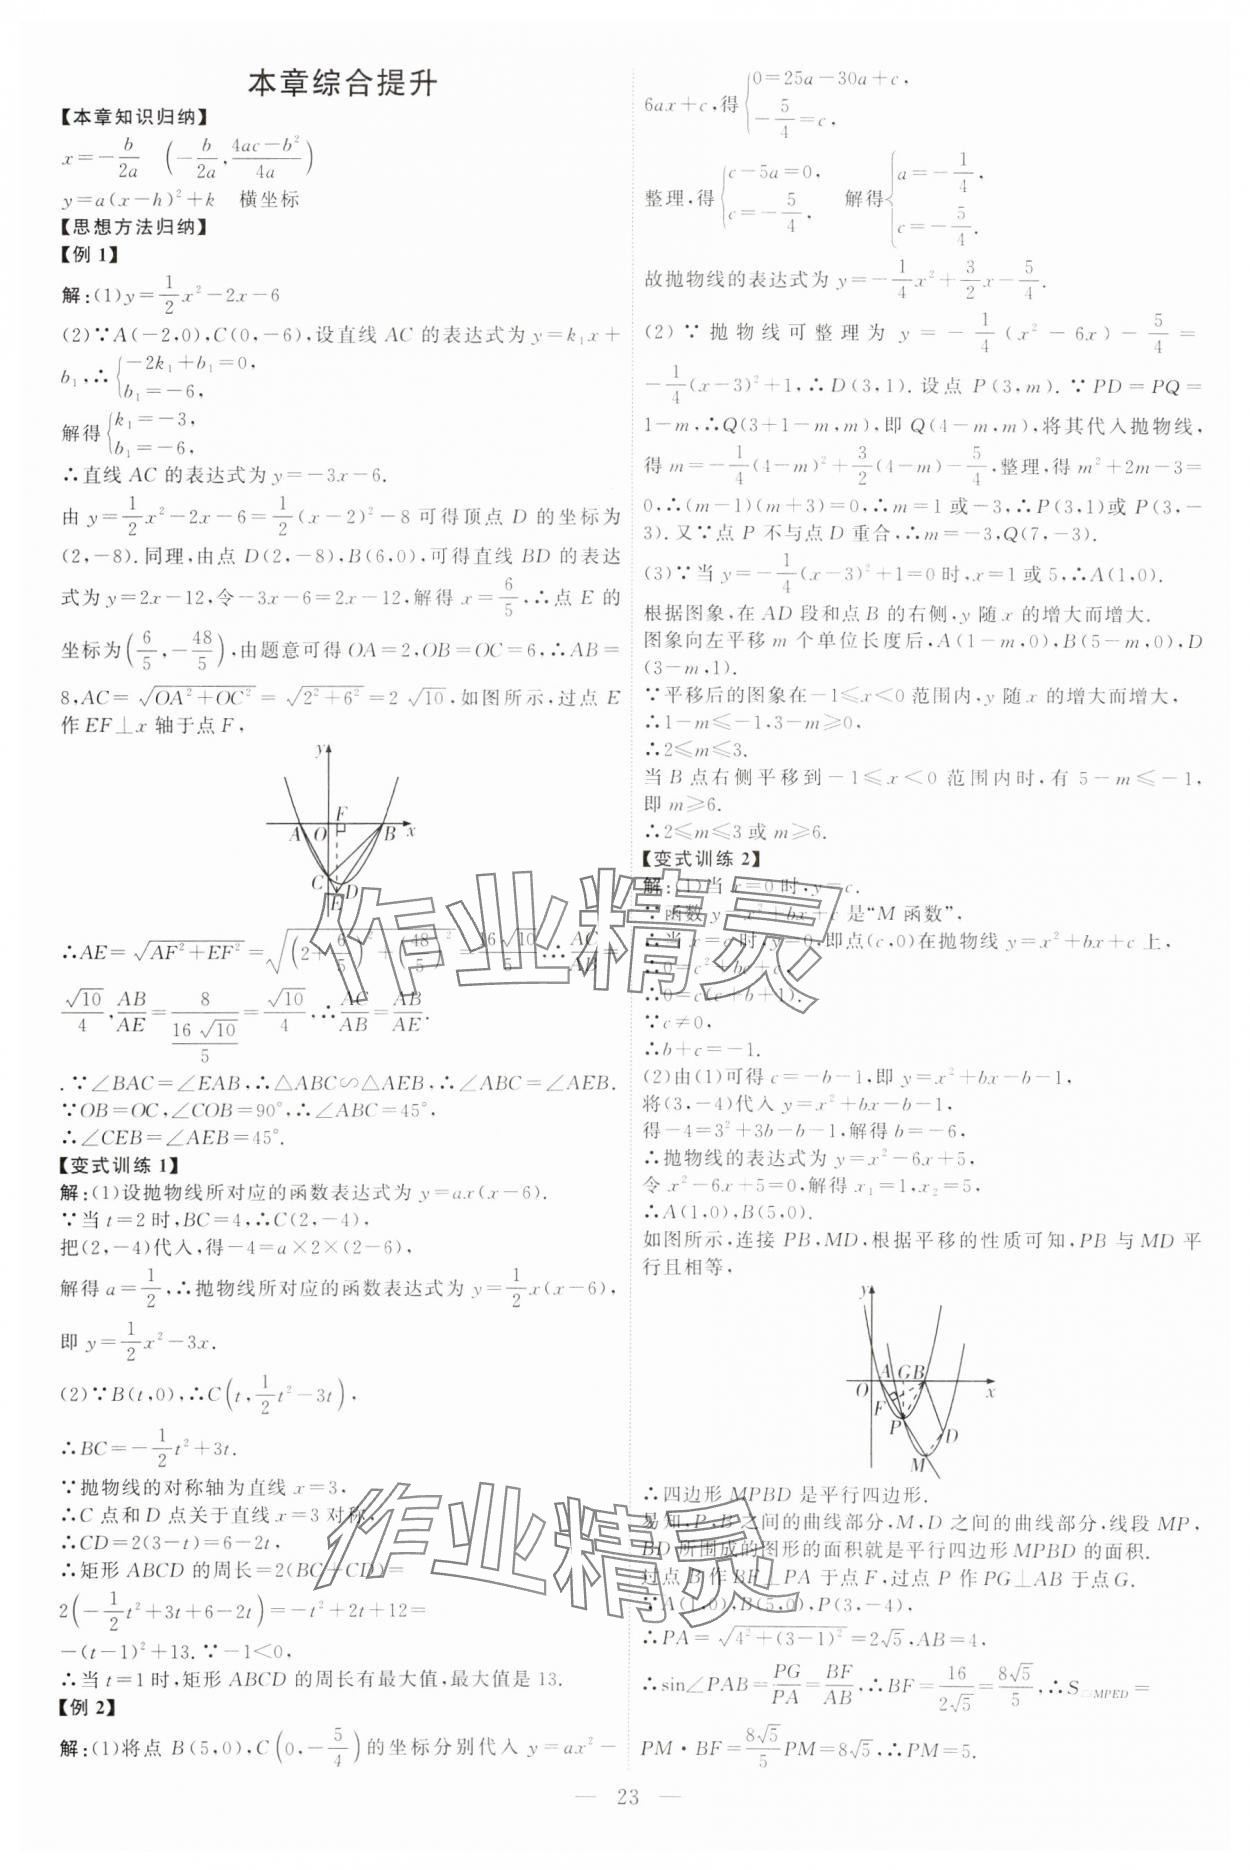 本章综合提升
【本章知识归纳】
x=-b/2a (-b/2a, (4ac-b²)/4a)
y=a(x-h)²+k 横坐标
【思想方法归纳】
【例 1】
解:(1)y=1/2x²-2x-6
(2)∵A(-2,0),C(0,-6),设直线 AC 的表达式为 y=k₁x+
b₁,∴{-2k₁+b₁=0, b₁=-6,
解得{k₁=-3, b₁=-6,
∴直线 AC 的表达式为 y=-3x-6.
由 y=1/2x²-2x-6=1/2(x-2)²-8 可得顶点 D 的坐标为
(2,-8).同理,由点 D(2,-8),B(6,0),可得直线 BD 的表达
式为 y=2x-12,令-3x-6=2x-12,解得 x=6/5,∴点 E 的
坐标为(6/5,-48/5),由题意可得 OA=2,OB=OC=6,∴AB=
8,AC=√(OA²+OC²)=√(2²+6²)=2√10,如图所示,过点 E
作 EF⊥x 轴于点 F,
y
F
A O B x
C
D
E
∴AE=√(AF²+EF²)=√((2+6/5)²+(48/5)²)=16√10/5,∴AC/AB=
√10/4,AB/AE=8/(16√10/5)=√10/4,∴AC/AB=AB/AE.
.∵∠BAC=∠EAB,∴△ABC∽△AEB,∴∠ABC=∠AEB.
∵OB=OC,∠COB=90°,∴∠ABC=45°,
∴∠CEB=∠AEB=45°.
【变式训练 1】
解:(1)设抛物线所对应的函数表达式为 y=ax(x-6).
∵当 t=2 时,BC=4,∴C(2,-4),
把(2,-4)代入,得-4=a×2×(2-6),
解得 a=1/2,∴抛物线所对应的函数表达式为 y=1/2x(x-6),
即 y=1/2x²-3x.
(2)∵B(t,0),∴C(t,1/2t²-3t),
∴BC=-1/2t²+3t.
∵抛物线的对称轴为直线 x=3,
∴C 点和 D 点关于直线 x=3 对称,
∴CD=2(3-t)=6-2t,
∴矩形 ABCD 的周长=2(BC+CD)=
2(-1/2t²+3t+6-2t)=-t²+2t+12=
-(t-1)²+13.∵-1<0,
∴当 t=1 时,矩形 ABCD 的周长有最大值,最大值是 13.
【例 2】
解:(1)将点 B(5,0),C(0,-5/4)的坐标分别代入 y=ax²-
6ax+c,得{0=25a-30a+c, -5/4=c,
整理,得{c-5a=0, c=-5/4, 解得{a=-1/4, c=-5/4.
故抛物线的表达式为 y=-1/4x²+3/2x-5/4.
(2)∵抛物线可整理为 y=-1/4(x²-6x)-5/4=
-1/4(x-3)²+1,∴D(3,1).设点 P(3,m).∵PD=PQ=
1-m,∴Q(3+1-m,m),即 Q(4-m,m),将其代入抛物线,
得 m=-1/4(4-m)²+3/2(4-m)-5/4,整理,得 m²+2m-3=
0,∴(m-1)(m+3)=0,∴m=1 或-3,∴P(3,1)或 P(3,-
3).又∵点 P 不与点 D 重合,∴m=-3,Q(7,-3).
(3)∵当 y=-1/4(x-3)²+1=0 时,x=1 或 5,∴A(1,0).
根据图象,在 AD 段和点 B 的右侧,y 随 x 的增大而增大.
图象向左平移 m 个单位长度后,A(1-m,0),B(5-m,0),D
(3-m,1).
∵平移后的图象在-1≤x<0 范围内,y 随 x 的增大而增大,
∴1-m≤-1,3-m≥0,
∴2≤m≤3.
当 B 点右侧平移到-1≤x<0 范围内时,有 5-m≤-1,
即 m≥6.
∴2≤m≤3 或 m≥6.
【变式训练 2】
解:(1)当 x=0 时,y=c.
∵函数 y=x²+bx+c 是“M 函数”,
∴当 x=c 时,y=0,即点(c,0)在抛物线 y=x²+bx+c 上,
∴0=c²+bc+c,
∴0=c(c+b+1).
∵c≠0,
∴b+c=-1.
(2)由(1)可得 c=-b-1,即 y=x²+bx-b-1,
将(3,-4)代入 y=x²+bx-b-1,
得-4=3²+3b-b-1,解得 b=-6,
∴抛物线的表达式为 y=x²-6x+5,
令 x²-6x+5=0,解得 x₁=1,x₂=5,
∴A(1,0),B(5,0).
如图所示,连接 PB,MD,根据平移的性质可知,PB 与 MD 平
行且相等,
y
A G B
O x
F
P
D
M
∴四边形 MPBD 是平行四边形.
易知,P,B 之间的曲线部分,M,D 之间的曲线部分,线段 MP,
BD 所围成的图形的面积就是平行四边形 MPBD 的面积.
过点 B 作 BF⊥PA 于点 F,过点 P 作 PG⊥AB 于点 G.
∵A(1,0),B(5,0),P(3,-4),
∴PA=√(4²+(3-1)²)=2√5,AB=4,
∴sin∠PAB=PG/PA=BF/AB,∴BF=16/2√5=8√5/5,∴S▱MPED=
PM·BF=8√5/5PM=8√5,∴PM=5.
— 23 —
作业精灵
作业精灵